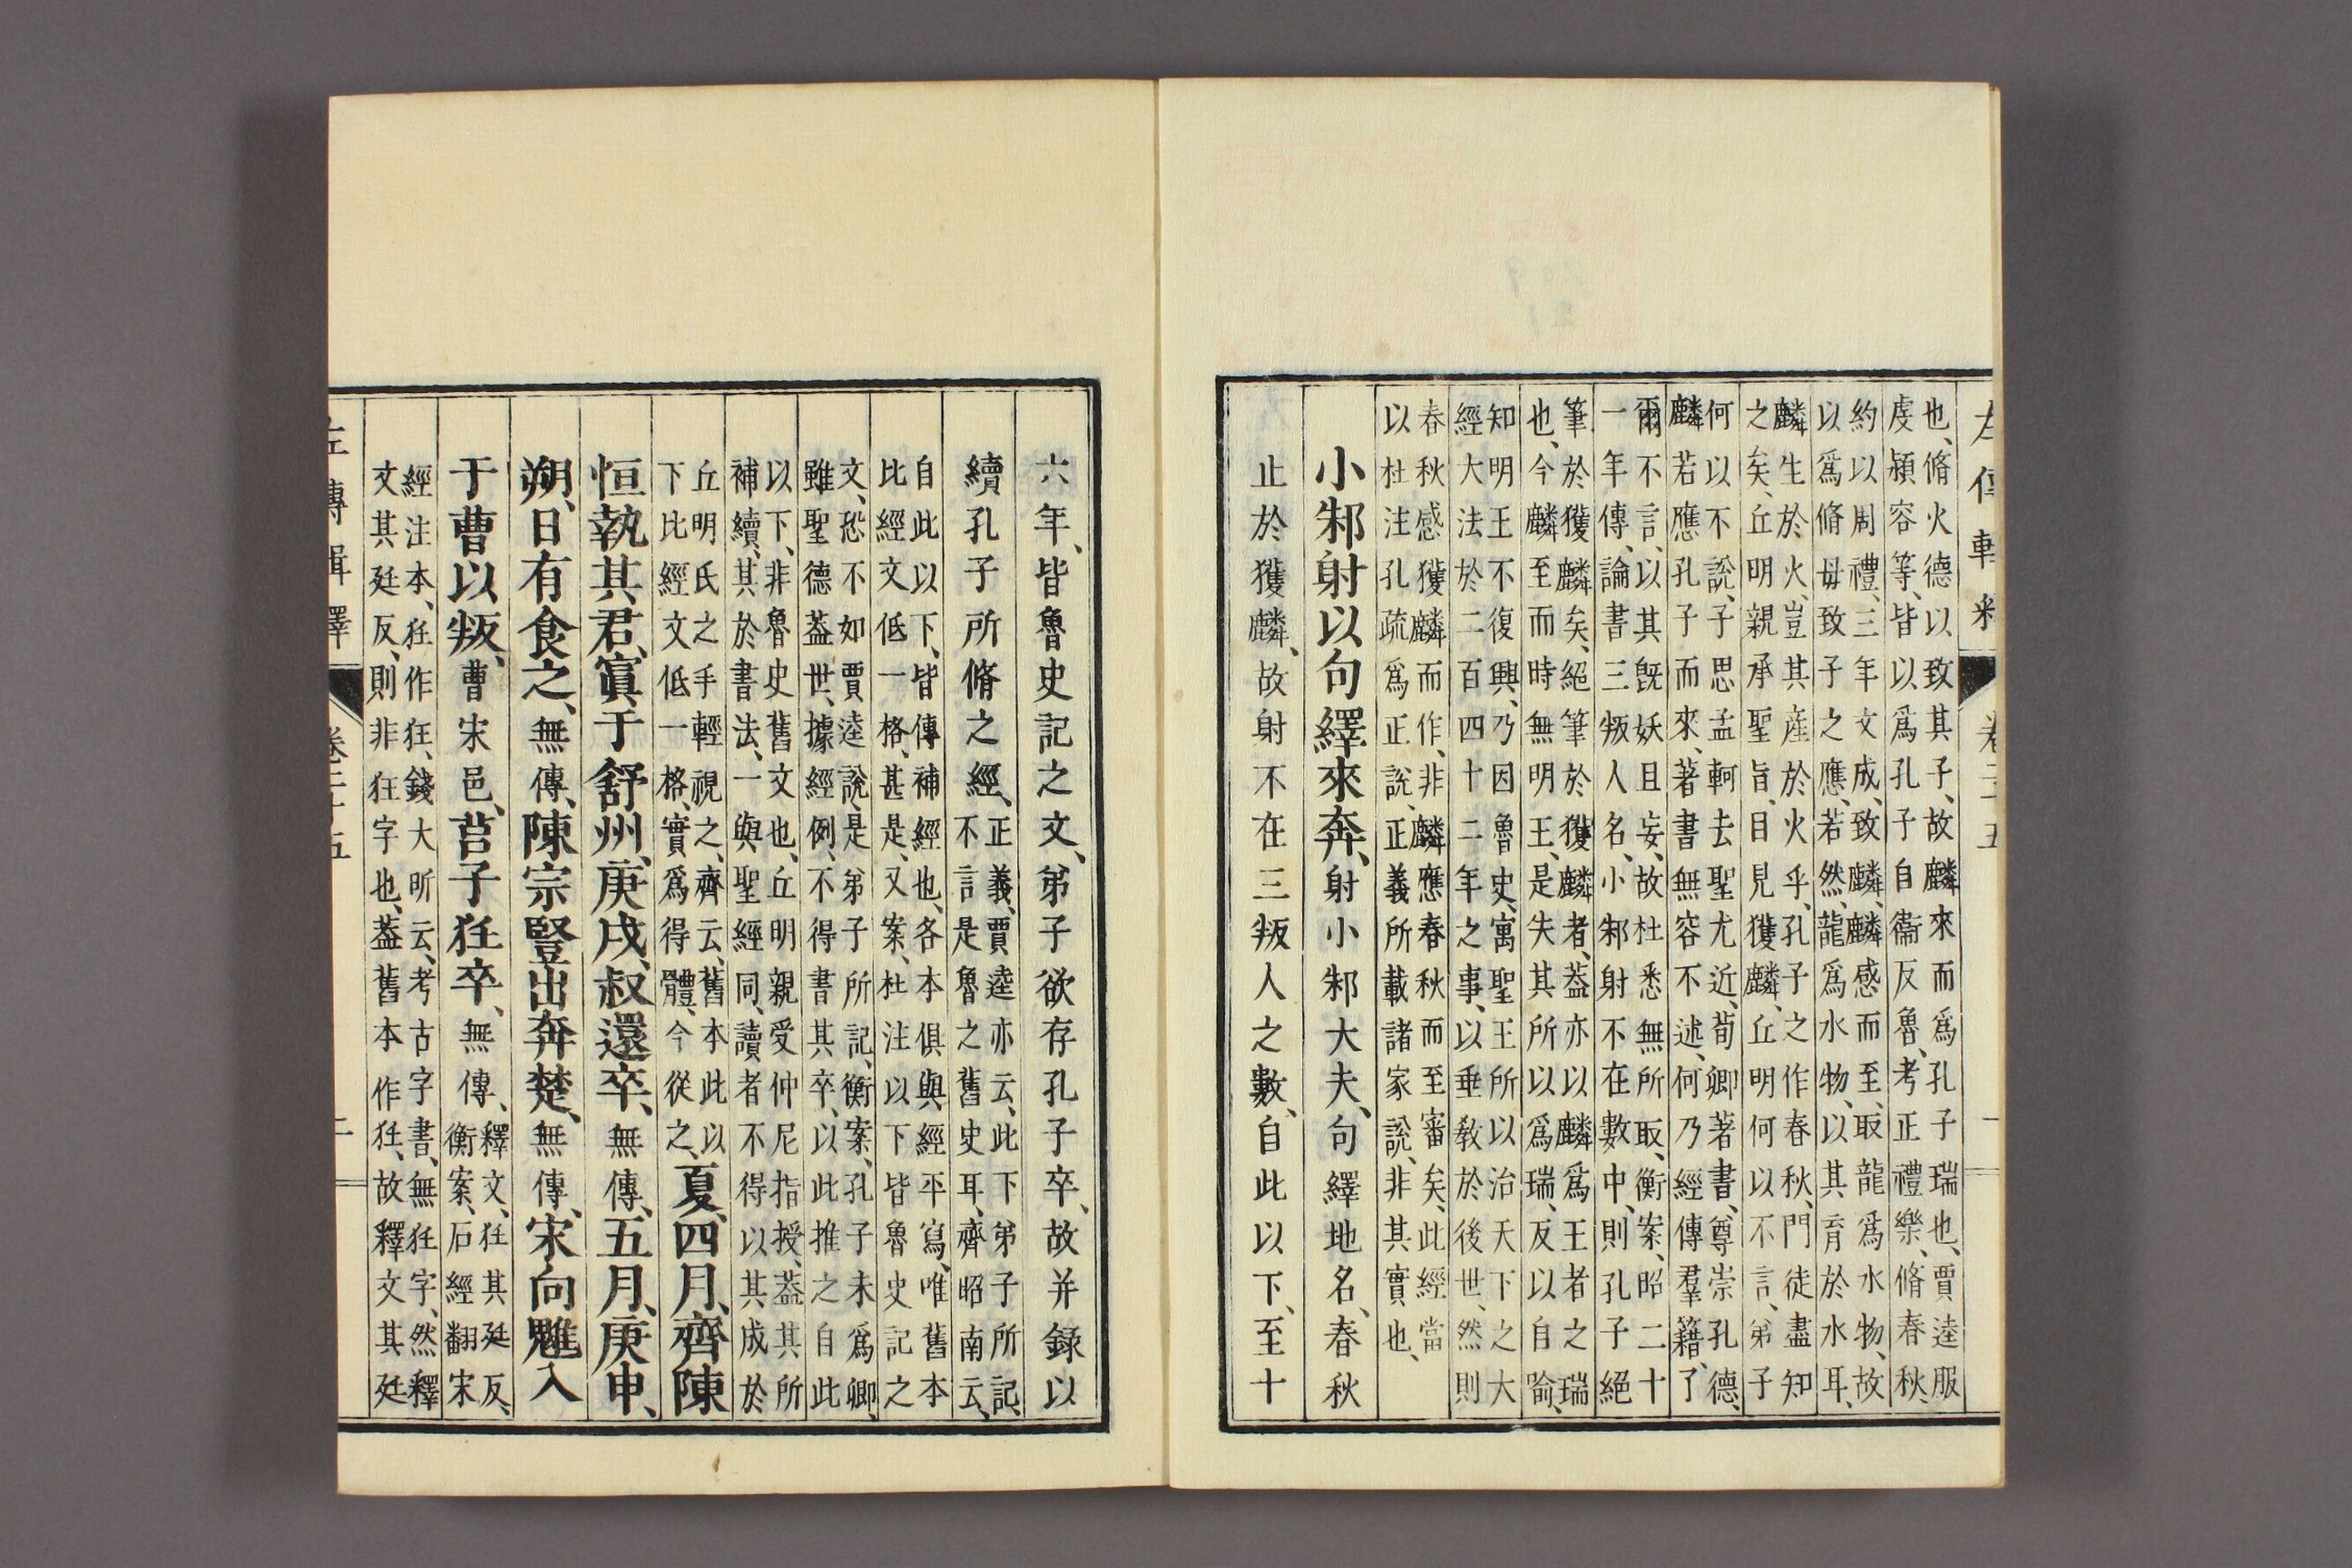 左傳輯釋 卷二十五 一
也、脩火德以致其子、故麟來而爲孔子瑞也、賈逵服
虔潁容等、皆以爲孔子自衞反魯、考正禮樂、脩春秋、
約以周禮、三年文成、致麟、麟感而至、取龍爲水物、故
以爲脩母致子之應、若然、龍爲水物、以其育於水耳、
麟生於火、豈其產於火乎、孔子之作春秋、門徒盡知
之矣、丘明親承聖旨、目見獲麟、丘明何以不言、弟子
何以不說、子思孟軻去聖尤近、荀卿著書、尊崇孔德、
麟若應孔子而來、著書無容不述、何乃經傳羣籍、了
爾不言、以其旣妖且妄、故杜悉無所取、衡案、昭二十
一年傳、論書三叛人名、小邾射不在數中、則孔子絕
筆於獲麟矣、絕筆於獲麟者、蓋亦以麟爲王者之瑞
也、今麟至而時無明王、是失其所以爲瑞、反以自喻、
知明王不復興、乃因魯史、寓聖王所以治天下之大
經大法於二百四十二年之事、以垂敎於後世、然則
春秋感獲麟而作、非麟應春秋而至審矣、此經當
以杜注孔疏爲正說、正義所載諸家說、非其實也、
小邾射以句繹來奔、射小邾大夫、句繹地名、春秋
止於獲麟、故射不在三叛人之數、自此以下、至十
六年、皆魯史記之文、弟子欲存孔子卒、故并錄以
續孔子所脩之經、正義、賈逵亦云、此下弟子所記、
不言是魯之舊史耳、齊昭南云、
自此以下、皆傳補經也、各本俱與經平寫、唯舊本
比經文低一格、甚是、又案、杜注以下皆魯史記之
文、恐不如賈逵說、是弟子所記、衡案、孔子未爲卿、
雖聖德蓋世、據經例、不得書其卒、以此推之自此
以下、非魯史舊文也、丘明親受仲尼指授、蓋其所
補續、其於書法、一與聖經同、讀者不得以其成於
丘明氏之手輕視之、齊云、舊本此以
下比經文低一格、實爲得體、今從之、夏、四月、齊陳
恒執其君、寘于舒州、庚戌、叔還卒、無傳、五月、庚申、
朔、日有食之、無傳、陳宗豎出奔楚、無傳、宋向魋入
于曹以叛、曹宋邑、莒子狂卒、無傳、釋文、狂其廷反、
衡案、石經翻宋
經注本、狂作狂、錢大昕云、考古字書、無狂字、然釋
文其廷反、則非狂字也、蓋舊本作狂、故釋文其廷
左傳輯釋 卷二十五 二